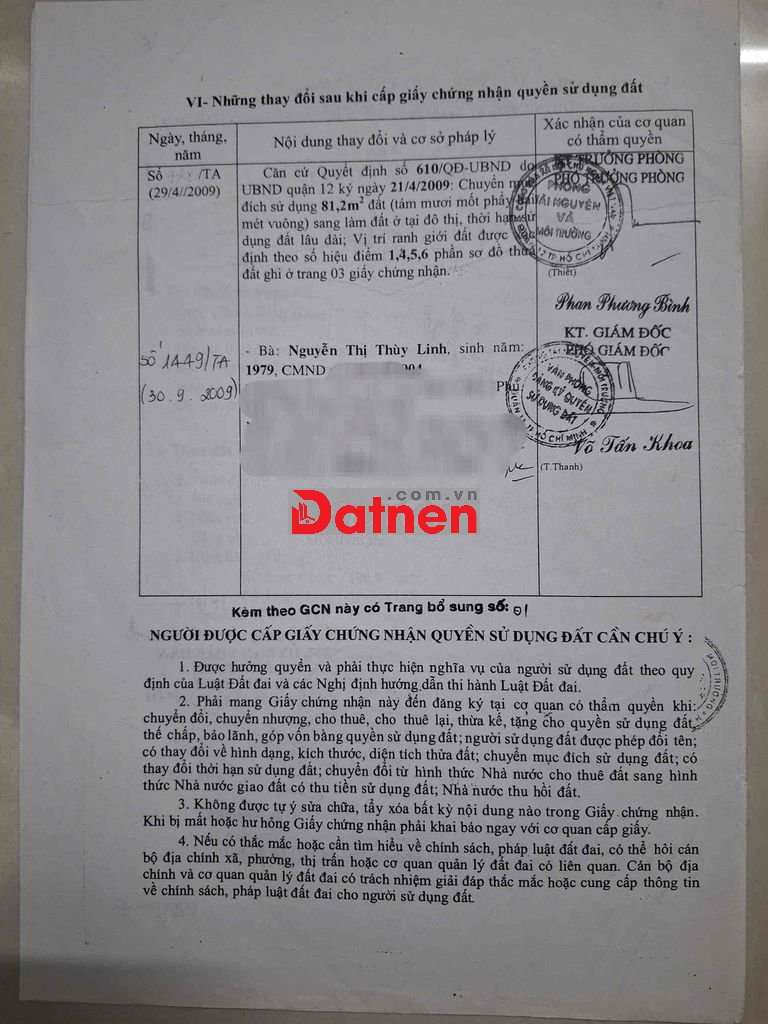 VI- Những thay đổi sau khi cấp giấy chứng nhận quyền sử dụng đất
Ngày, tháng, năm
Nội dung thay đổi và cơ sở pháp lý
Xác nhận của cơ quan có thẩm quyền
Số /TA
(29/4//2009)
Căn cứ Quyết định số 610/QĐ-UBND do
UBND quận 12 ký ngày 21/4/2009: Chuyển
đích sử dụng 81,2m² đất (tám mươi mốt phẩy
mét vuông) sang làm đất ở tại đô thị, thời hạn sử
dụng đất lâu dài; Vị trí ranh giới đất được
định theo số hiệu điểm 1,4,5,6 phần sơ đồ thửa
đất ghi ở trang 03 giấy chứng nhận.
KT TRƯỞNG PHÒNG
PHÓ TRƯỞNG PHÒNG
PHÒNG
TÀI NGUYÊN
VÀ
MÔI TRƯỜNG
(Thiết)
Phan Phương Bình
Số 1449/TA
(30.9.2009)
- Bà: Nguyễn Thị Thùy Linh, sinh năm:
1979, CMND
KT. GIÁM ĐỐC
PHÓ GIÁM ĐỐC
VĂN PHÒNG
ĐĂNG KÝ QUYỀN
SỬ DỤNG ĐẤT
Võ Tấn Khoa
(T.Thanh)
.com.vn
Datnen
Kèm theo GCN này có Trang bổ sung số: 01
NGƯỜI ĐƯỢC CẤP GIẤY CHỨNG NHẬN QUYỀN SỬ DỤNG ĐẤT CẦN CHÚ Ý :
1. Được hưởng quyền và phải thực hiện nghĩa vụ của người sử dụng đất theo quy
định của Luật Đất đai và các Nghị định hướng dẫn thi hành Luật Đất đai.
2. Phải mang Giấy chứng nhận này đến đăng ký tại cơ quan có thẩm quyền khi:
chuyển đổi, chuyển nhượng, cho thuê, cho thuê lại, thừa kế, tặng cho quyền sử dụng đất,
thế chấp, bảo lãnh, góp vốn bằng quyền sử dụng đất; người sử dụng đất được phép đổi tên;
có thay đổi về hình dạng, kích thước, diện tích thửa đất; chuyển mục đích sử dụng đất; có
thay đổi thời hạn sử dụng đất; chuyển đổi từ hình thức Nhà nước cho thuê đất sang hình
thức Nhà nước giao đất có thu tiền sử dụng đất; Nhà nước thu hồi đất.
3. Không được tự ý sửa chữa, tẩy xóa bất kỳ nội dung nào trong Giấy chứng nhận.
Khi bị mất hoặc hư hỏng Giấy chứng nhận phải khai báo ngay với cơ quan cấp giấy.
4. Nếu có thắc mắc hoặc cần tìm hiểu về chính sách, pháp luật đất đai, có thể hỏi cán
bộ địa chính xã, phường, thị trấn hoặc cơ quan quản lý đất đai có liên quan. Cán bộ địa
chính và cơ quan quản lý đất đai có trách nhiệm giải đáp thắc mắc hoặc cung cấp thông tin
về chính sách, pháp luật đất đai cho người sử dụng đất.